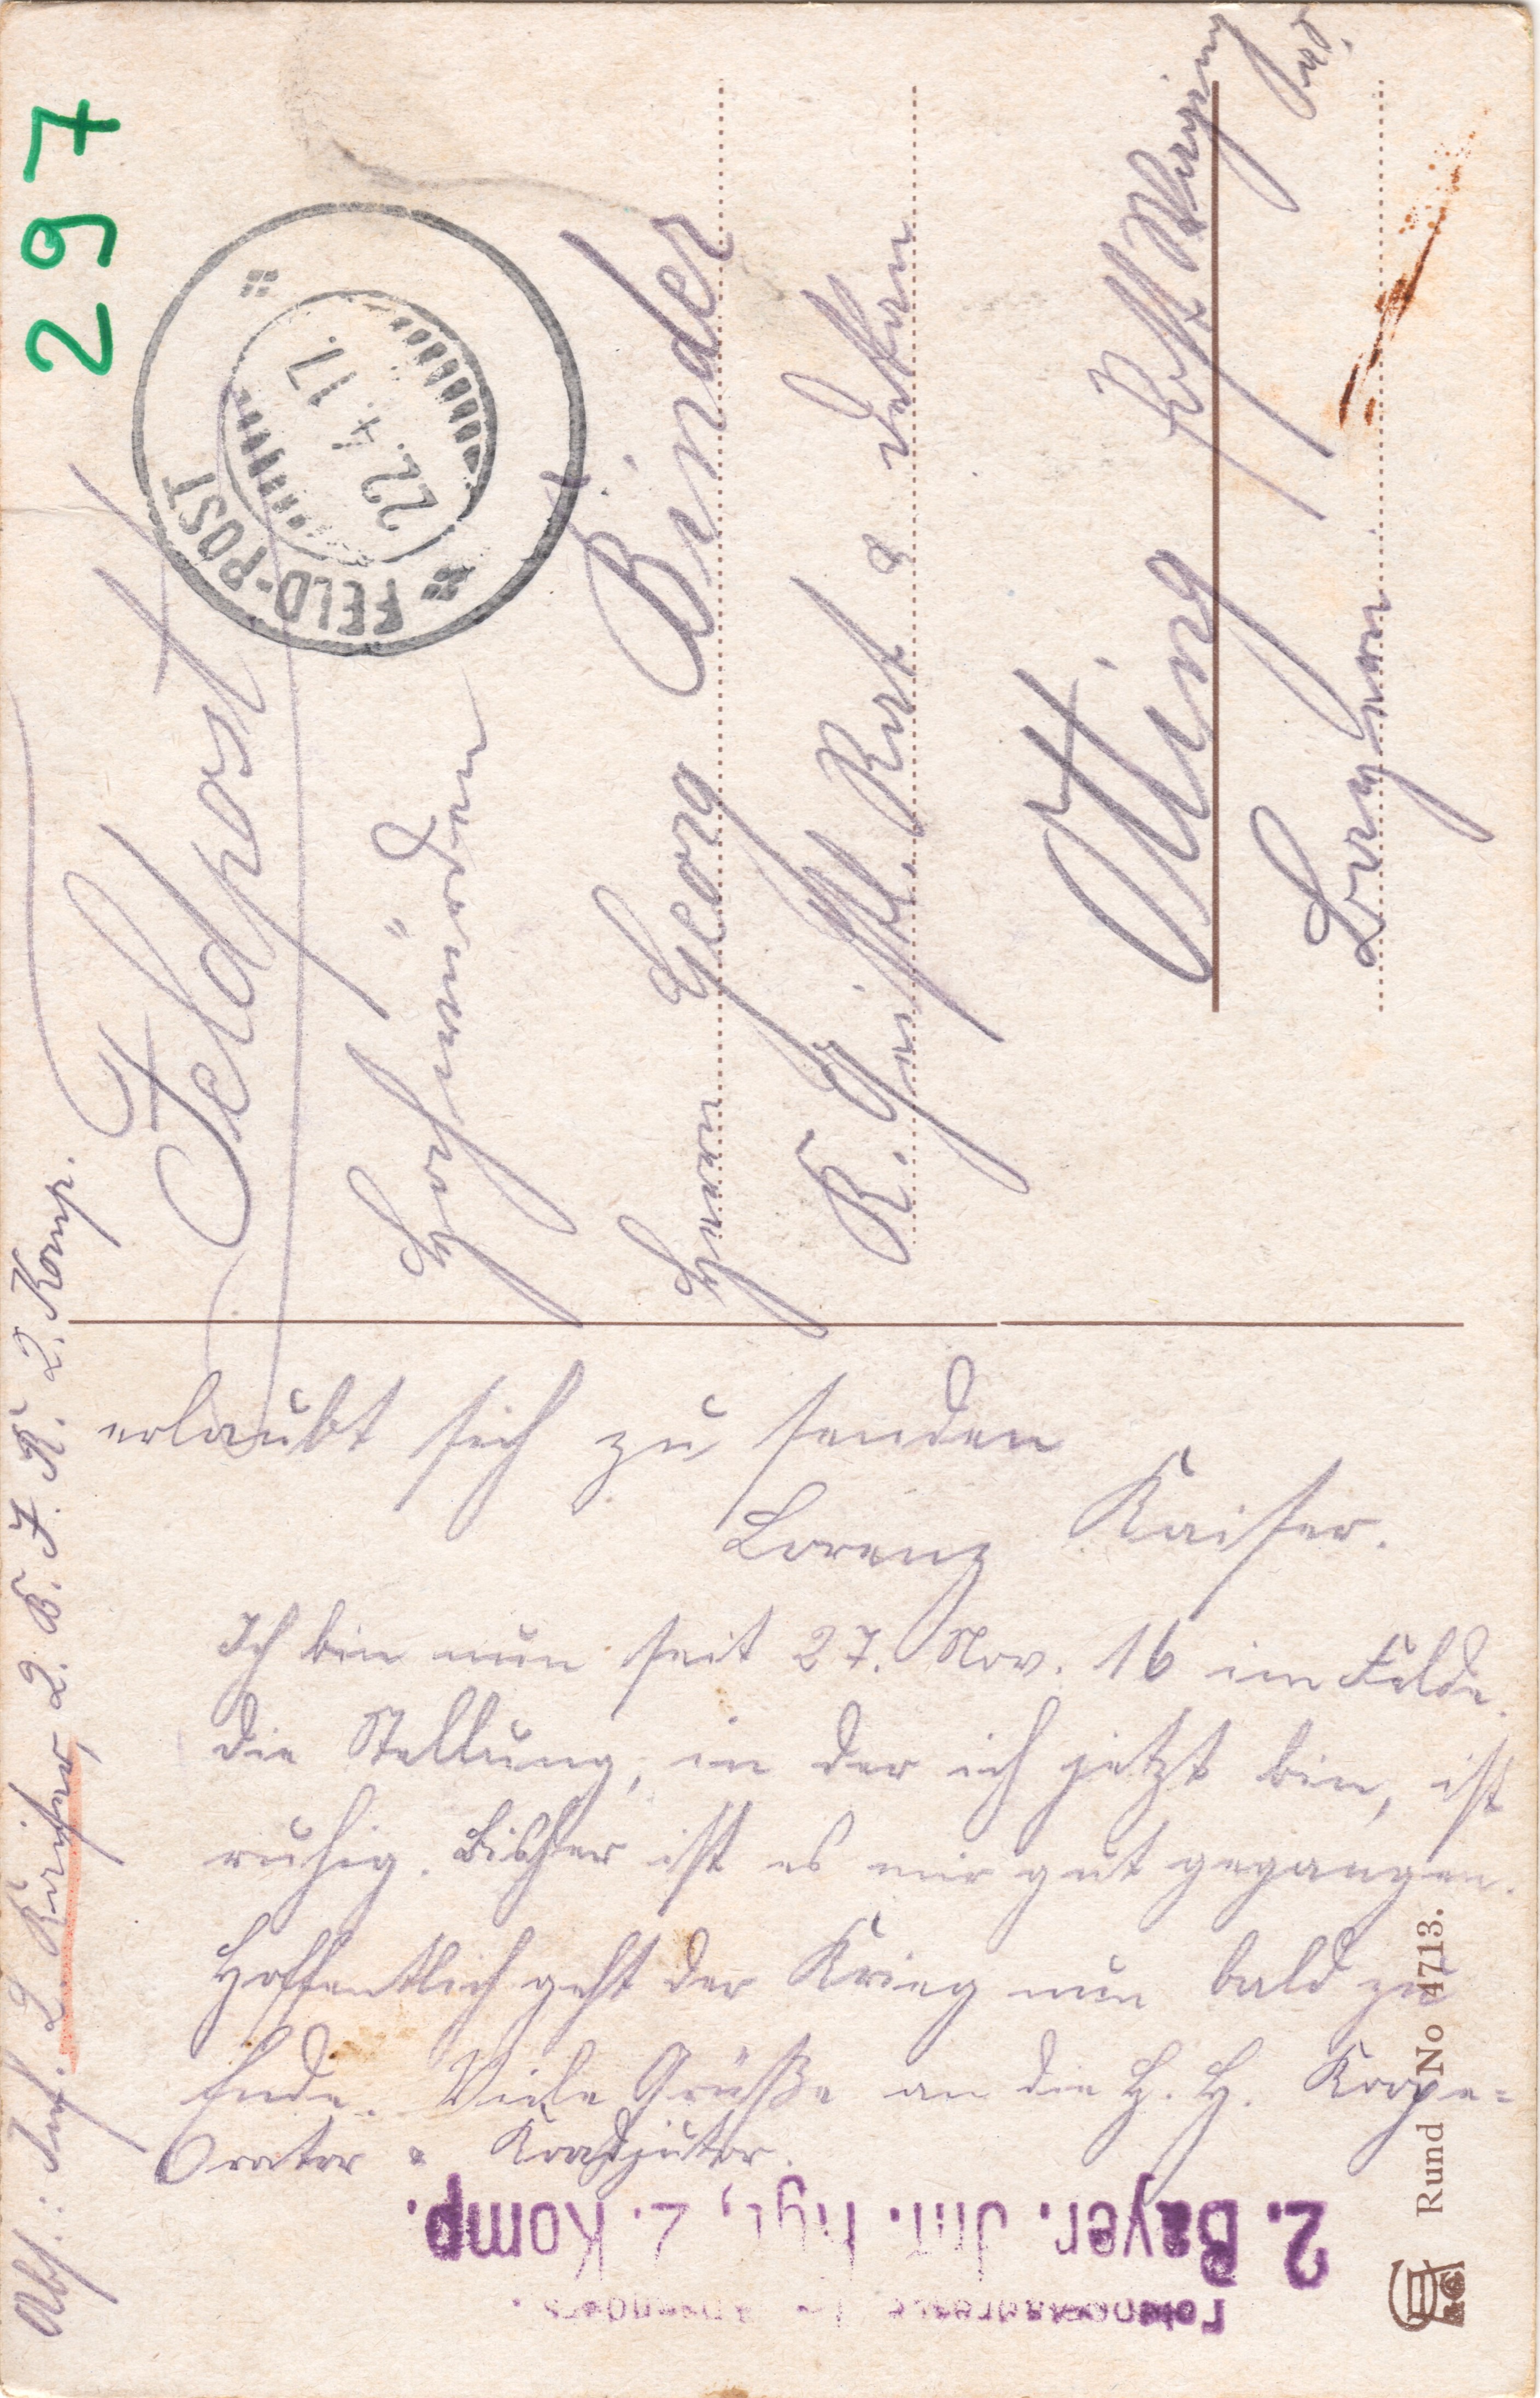 297
Abs.: Inf. L. Kaiser, 2. B. I. R. 2. Komp.
Feldpost
FELD-POST
22 4 17.
Hochwürden
Herrn Georg Binder
K. Geistl. Rat & Dekan
Otting
Post
Bayern.
erlaubt sich zu senden
Lorenz Kaiser.
Ich bin nun seit 27. Nov. 16 im Felde.
Die Stellung, in der ich jetzt bin, ist
ruhig. Bisher ist es mir gut gegangen.
Hoffentlich geht der Krieg nun bald zu
Ende. Viele Grüße an die H. H. Koope-
rator & Koadjutor.
2. Bayer. Inf. Rgt, 2. Komp.
Rund No 4713.